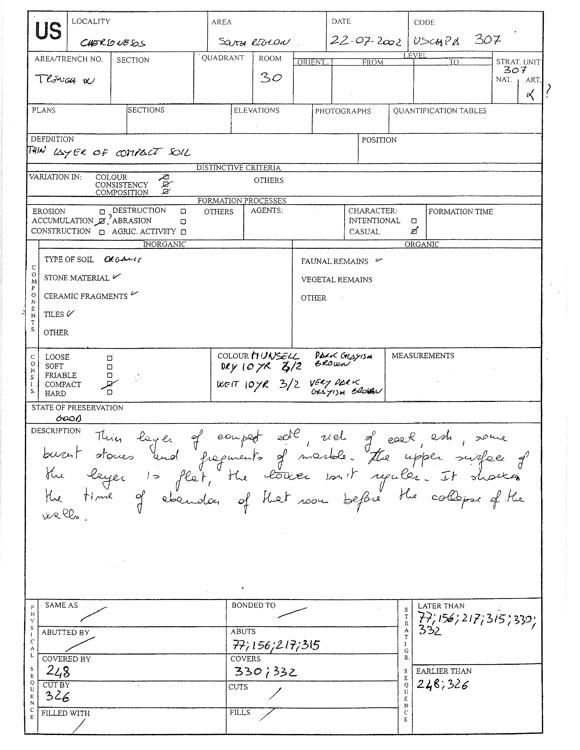 US
LOCALITY
CHERSONESOS
AREA
SOUTH REGION
DATE
22-07-2002
CODE
USCHPA 307
AREA/TRENCH NO.
SECTION
QUADRANT
ROOM
30
LEVEL
ORIENT. FROM TO
STRAT. UNIT
307
NAT. ART.
α ?
PLANS
SECTIONS
ELEVATIONS
PHOTOGRAPHS
QUANTIFICATION TABLES
DEFINITION
THIN LAYER OF COMPACT SOIL
POSITION
DISTINCTIVE CRITERIA
VARIATION IN: COLOUR
CONSISTENCY
COMPOSITION
OTHERS
FORMATION PROCESSES
EROSION
ACCUMULATION ?
CONSTRUCTION
DESTRUCTION
ABRASION
AGRIC. ACTIVITY
OTHERS
AGENTS:
CHARACTER:
INTENTIONAL
CASUAL
FORMATION TIME
COMPONENTS
INORGANIC
TYPE OF SOIL ORGANIC
STONE MATERIAL ✓
CERAMIC FRAGMENTS ✓
TILES ✓
OTHER
ORGANIC
FAUNAL REMAINS ✓
VEGETAL REMAINS
OTHER
CONSIS.
LOOSE
SOFT
FRIABLE
COMPACT
HARD
COLOUR MUNSELL DARK GRAYISH
DRY 10 YR /2 BROWN
WEIT 10YR 3/2 VERY DARK
GRAYISH BROWN
MEASUREMENTS
STATE OF PRESERVATION
GOOD
DESCRIPTION
Thin layer of compact soil, rich of coal, ash, some
burnt stones and fragments of marble. The upper surface of
the layer is flat, the lower isn't regular. It shows
the time of abandon of that room before the collapse of the
walls.
PHYSICAL SEQUENCE
SAME AS
BONDED TO
ABUTTED BY
ABUTS
77;156;217;315
COVERED BY
248
COVERS
330;332
CUT BY
326
CUTS
FILLED WITH
FILLS
STRATIGR. SEQUENCE
LATER THAN
77;156;217;315;330;
332
EARLIER THAN
248;326